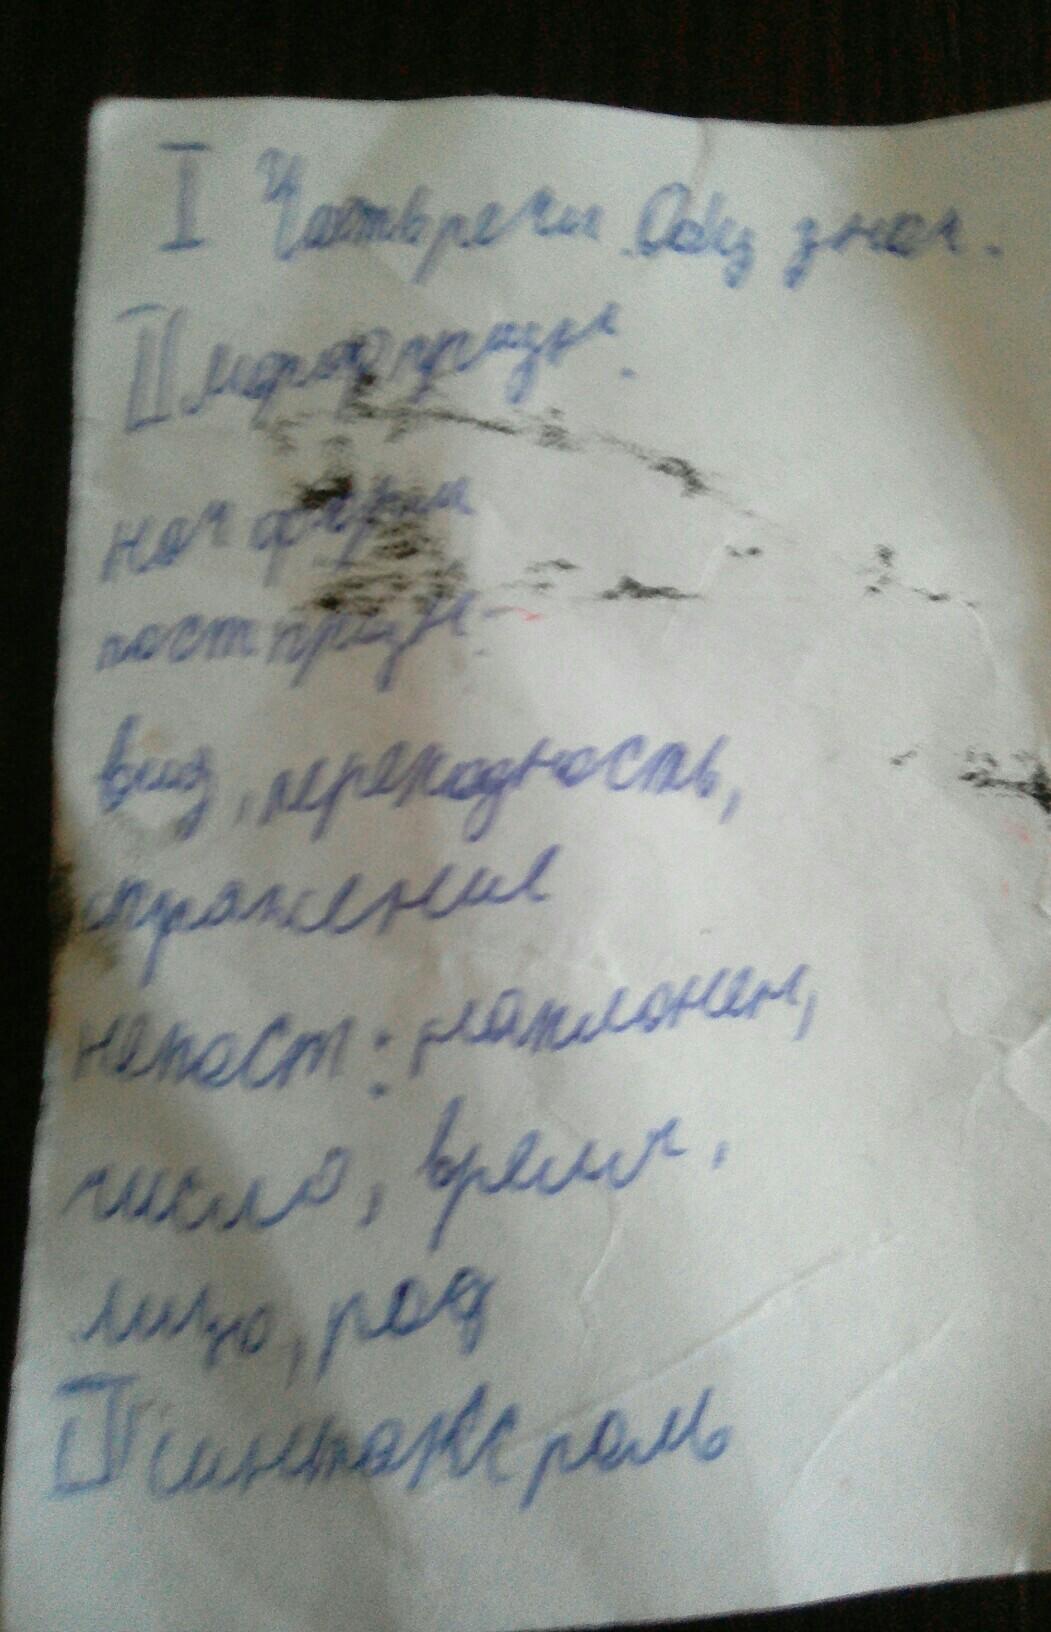 I Часть речи. Общ знач.
II морф призн.
нач форм
пост призн-
вид, переходность,
спряжение
непост: наклонен,
число, время,
лицо, род
III синтакс роль